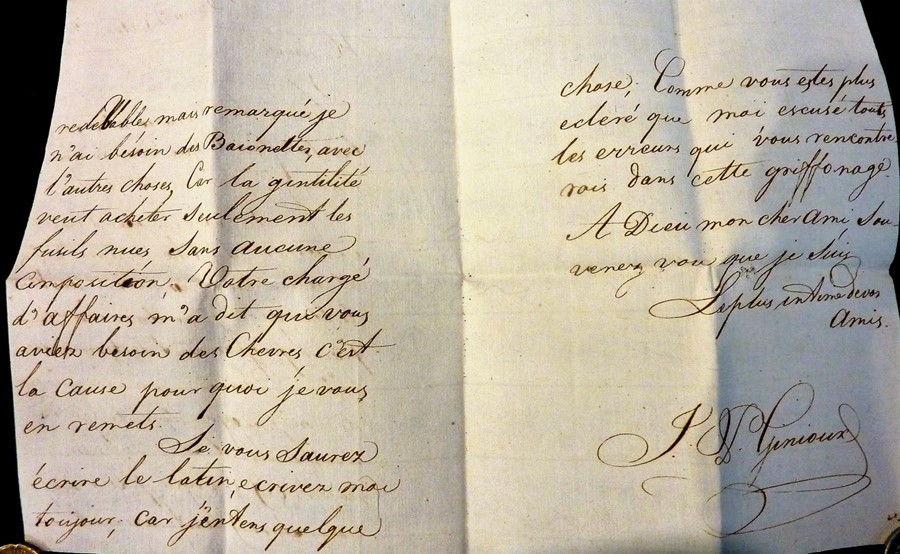 redebables mais remarqué je
n'ai bésoin des Baionettes, avec
l'autres choses, Car la gintilité
veut acheter seulement les
fusils nues sans aucune
Composition. Votre chargé
d'affaires m'a dit que vous
aviez besoin des Chevres c'est
la cause pour quoi je vous
en remets.
Si vous saurez
écrire le latin, ecrivez moi
toujour, car j'entens quelque
chose, Comme vous estes plus
ecleré que moi escusé touts
les erreurs qui vous rencontre
rois dans cette griffonage
A Dieu mon cher Ami Sou
venez vou que je suis
Le plus intime de vos
Amis.
J. Genioux